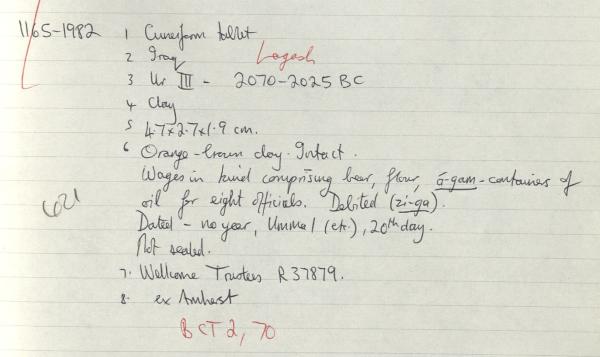 1165-1982 1 Cuneiform tablet
2 Iraq Lagash
3 Ur III - 2070-2025 BC
4 Clay
5 4.7×2.7×1.9 cm.
6 Orange-brown clay. Intact.
Wages in kind comprising beer, flour, á-gam-containers of
oil for eight officials. Debited (zi-ga).
621
Dated - no year, Umma 1 (etc.), 20th day.
Not sealed.
7. Wellcome Trustees R37879.
8. ex Amherst
BCT 2, 70